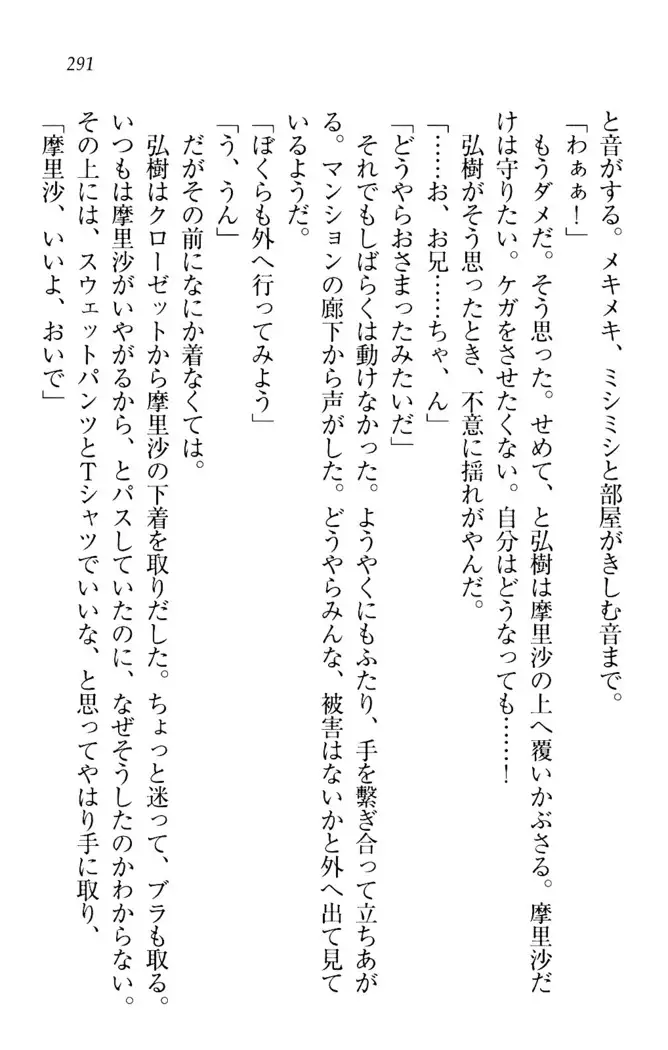 291
と音がする。メキメキ、ミシミシと部屋がきしむ音まで。
「わぁぁ！」
もうダメだ。そう思った。せめて、と弘樹は摩里沙の上へ覆いかぶさる。摩里沙だ
けは守りたい。ケガをさせたくない。自分はどうなっても……！
弘樹がそう思ったとき、不意に揺れがやんだ。
「……お、お兄……ちゃ、ん」
「どうやらおさまったみたいだ」
それでもしばらくは動けなかった。ようやくにもふたり、手を繫ぎ合って立ちあが
る。マンションの廊下から声がした。どうやらみんな、被害はないかと外へ出て見て
いるようだ。
「ぼくらも外へ行ってみよう」
「う、うん」
だがその前になにか着なくては。
弘樹はクローゼットから摩里沙の下着を取りだした。ちょっと迷って、ブラも取る。
いつもは摩里沙がいやがるから、とパスしていたのに、なぜそうしたのかわからない。
その上には、スウェットパンツとTシャツでいいな、と思ってやはり手に取り、
「摩里沙、いいよ、おいで」